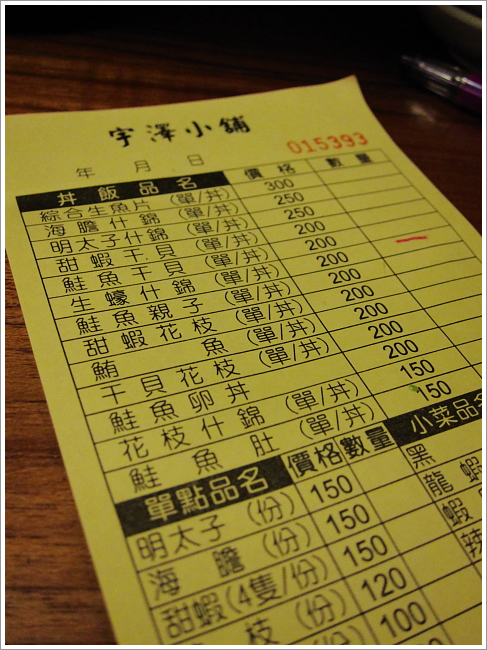 宇澤小舖
015393
年 月 日
丼飯品名 價格 數量
綜合生魚片(單/丼) 300
海膽什錦(單/丼) 250
明太子什錦(單/丼) 250
甜蝦干貝(單/丼) 200
鮭魚干貝(單/丼) 200
生蠔什錦(單/丼) 200
鮭魚親子(單/丼) 200
甜蝦花枝(單/丼) 200
鮪魚(單/丼) 200
干貝花枝(單/丼) 200
鮭魚卵丼 200
花枝什錦(單/丼) 150
鮭魚肚(單/丼) 150
單點品名 價格 數量 小菜品名
明太子(份) 150 黑
海膽(份) 150 龍蝦
甜蝦(4隻/份) 150 蝦
枝(份) 120 辣
(份) 100